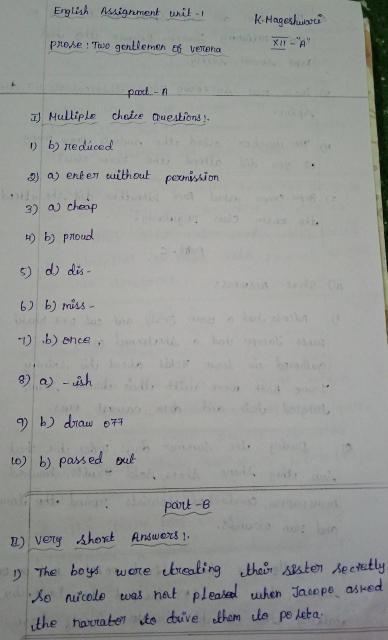 English Assignment unit-1
K. Mageshwari
XII - "A"
prose: Two gentlemen of verona
part-A
I) Multiple choice Questions:
1) b) reduced
2) a) enter without permission
3) a) cheap
4) b) proud
5) d) dis-
6) b) miss-
7) b) once,
8) a) -ish
9) b) draw off
10) b) passed out
part-B
II) very short Answers:
1) The boys were treating their sister secretly
So nicolo was not pleased when Jacopo asked
the narrator to drive them to poleta.